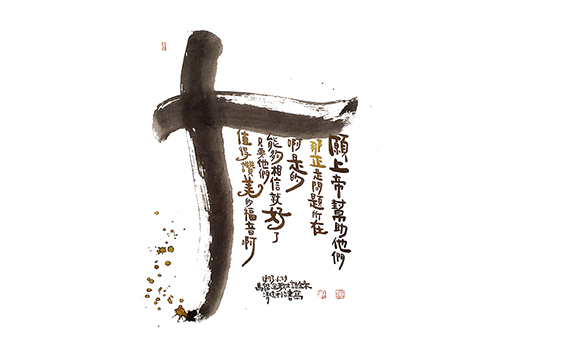 願上帝幫助他們
那正是問題所在
啊是的
能夠相信就好了
只要他們
值得讚美的福音啊